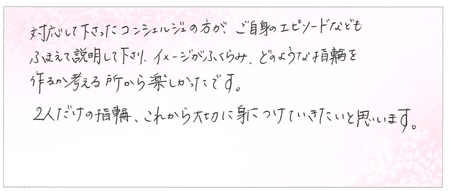 対応して下さったコンシェルジュの方が、ご自身のエピソードなども
ふまえて説明して下さり、イメージがふくらみ、どのような指輪を
作るか考える所から楽しかったです。
2人だけの指輪、これから大切に身につけていきたいと思います。